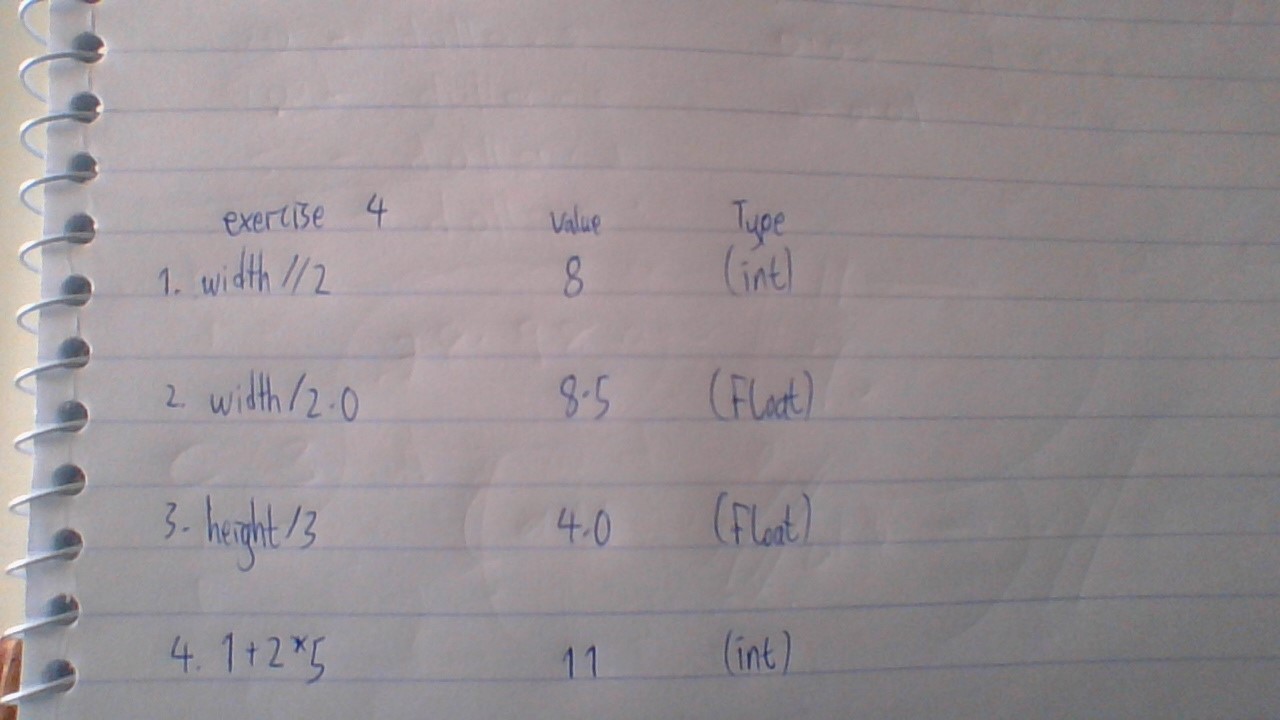 exercise 4 Value Type
1. width //2 8 (int)
2. width/2.0 8.5 (Float)
3. height/3 4.0 (Float)
4. 1+2*5 11 (int)